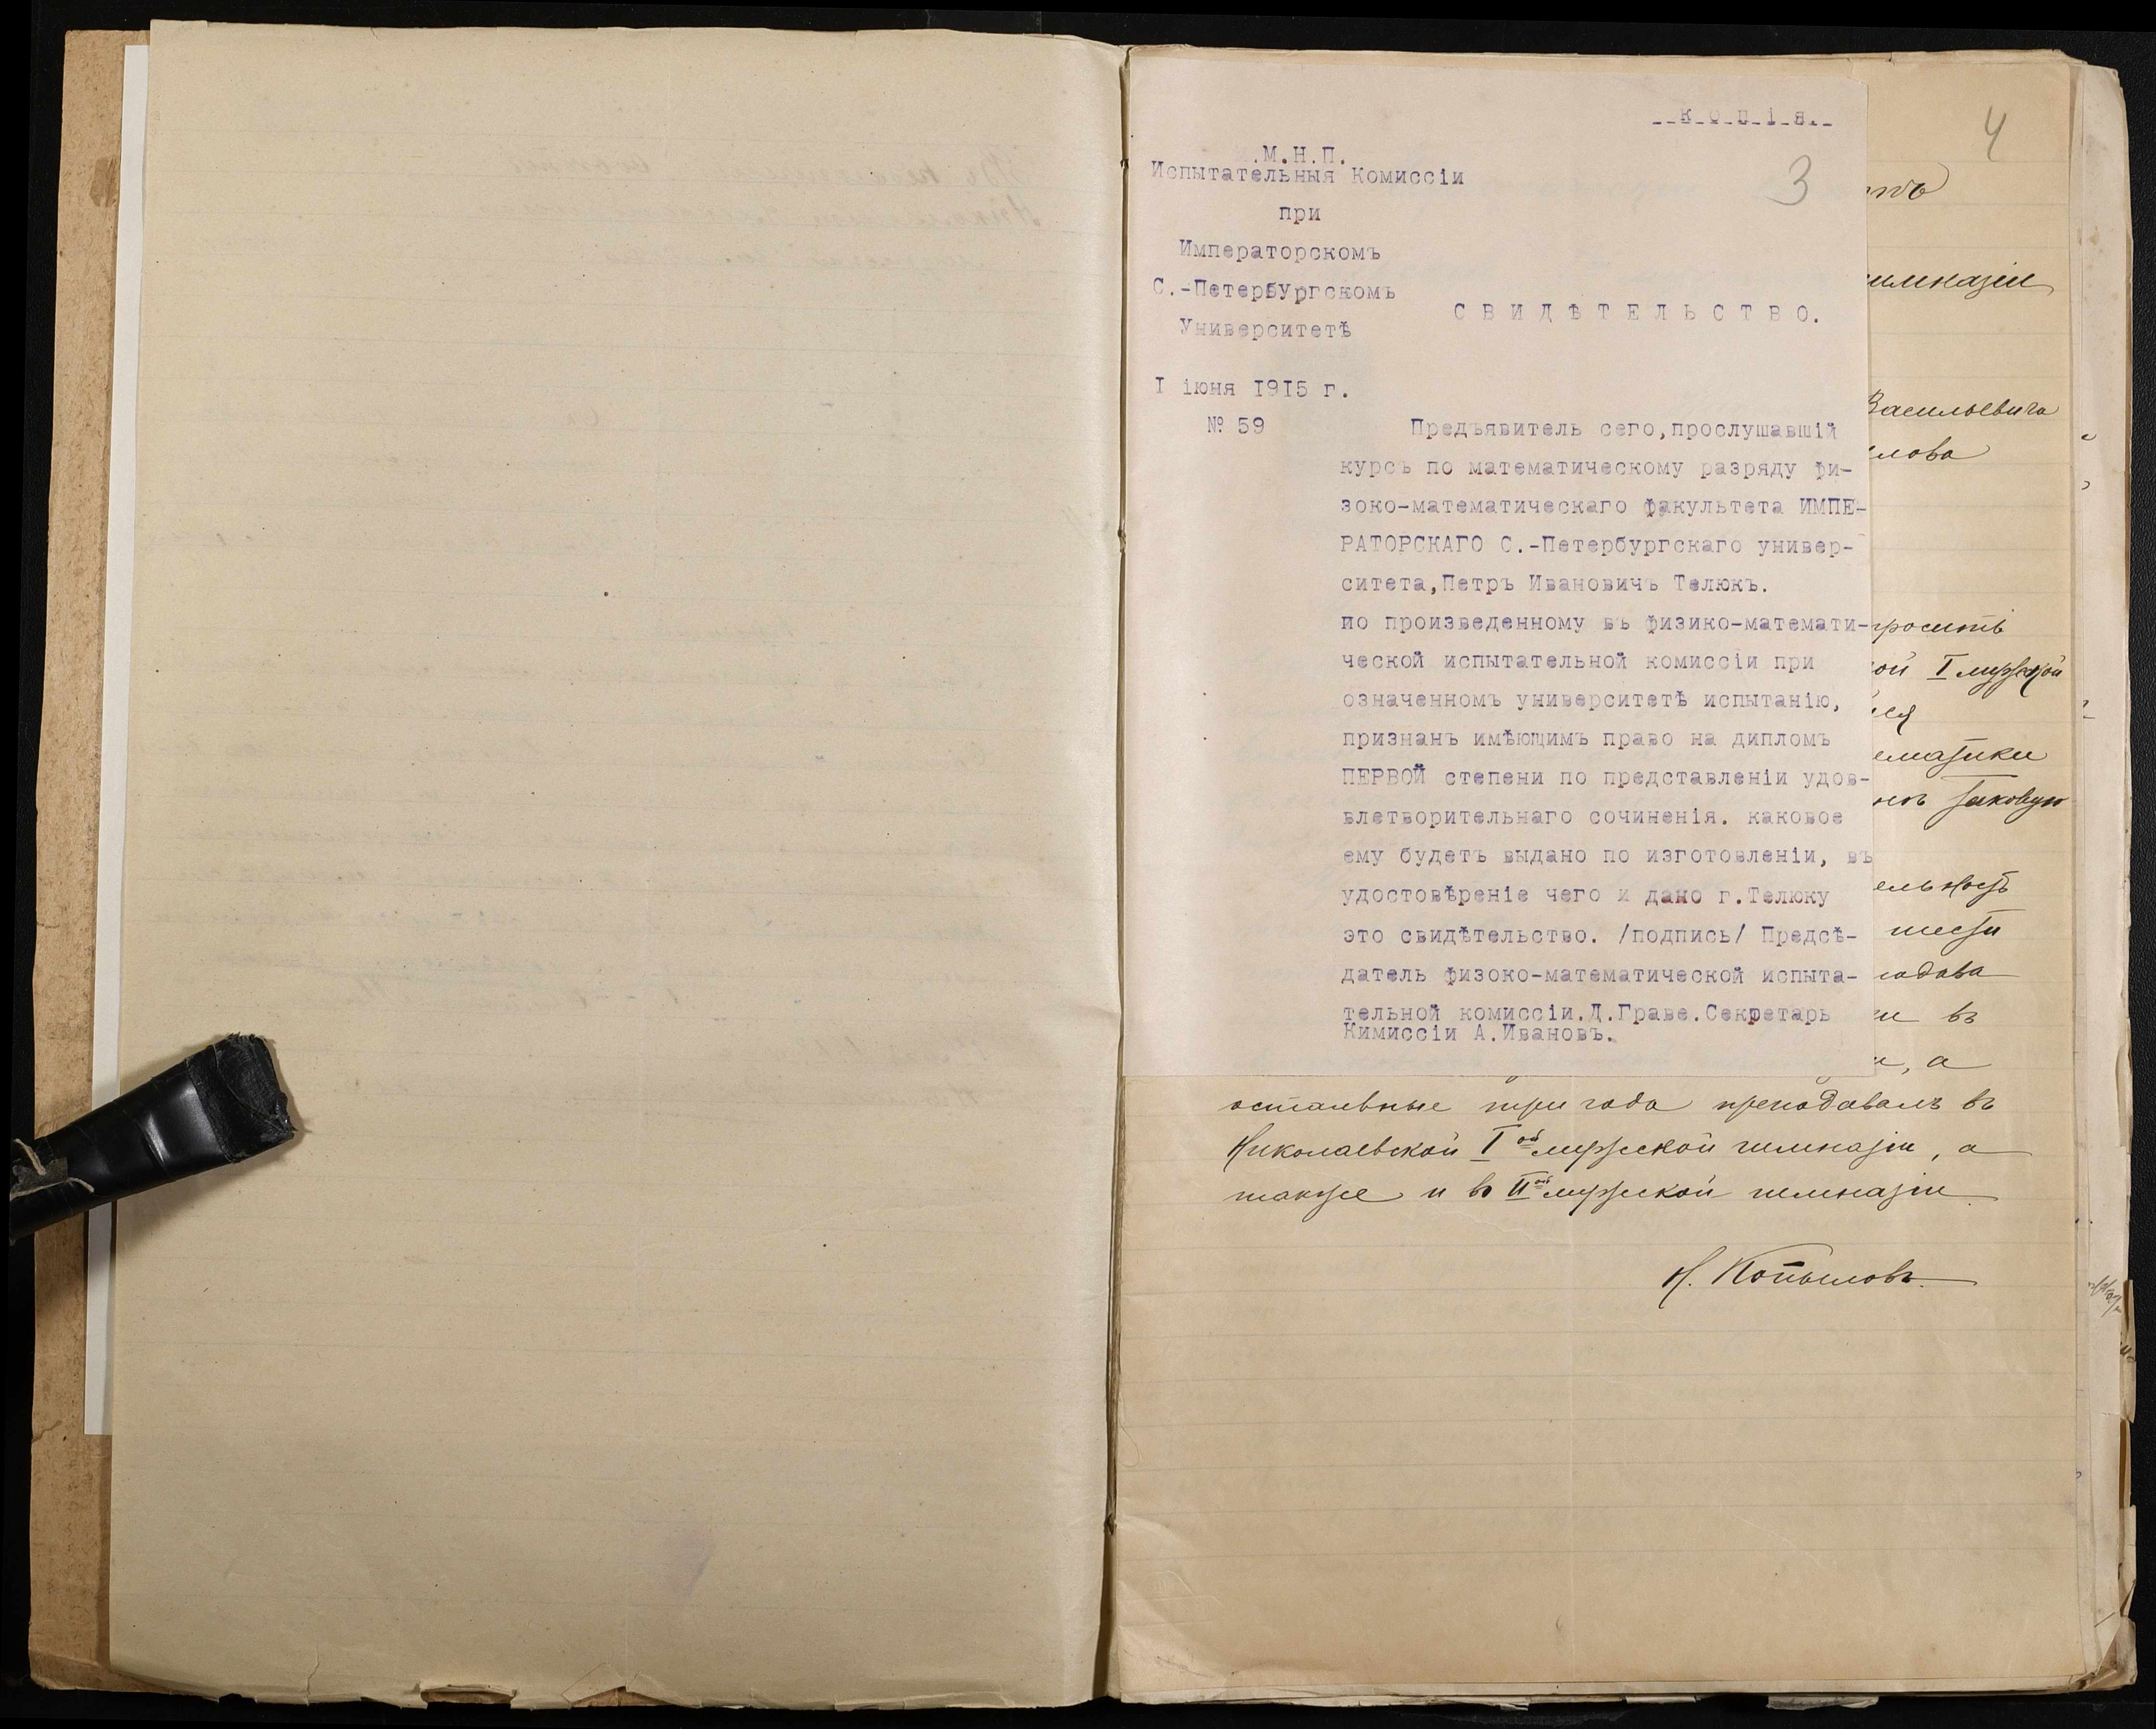 К О П І Я.
3
.М.Н.П.
Испытательныя Комиссіи
при
Императорскомъ
С.-Петербургскомъ
Университетѣ
С В И Д Ѣ Т Е Л Ь С Т В О.
I іюня 1915 г.
№ 59
Предъявитель сего,прослушавшій
курсъ по математическому разряду фи-
зоко-математическаго факультета ИМПЕ-
РАТОРСКАГО С.-Петербургскаго универ-
ситета,Петръ Ивановичъ Телюкъ.
по произведенному въ физико-математи-
ческой испытательной комиссіи при
означенномъ университетѣ испытанію,
признанъ имѣющимъ право на дипломъ
ПЕРВОЙ степени по представленіи удов-
влетворительнаго сочиненія. каковое
ему будетъ выдано по изготовленіи, въ
удостовѣреніе чего и дано г.Телюку
это свидѣтельство. /подпись/ Предсѣ-
датель физоко-математической испыта-
тельной комиссіи.Д.Граве.Секретарь
Кимиссіи А.Ивановъ.
4
имназіи
Васильевича
лова
просить
ой I мужской
ематики
таковую
ельность
шести
подава
и въ
и, а
остальные три года преподавалъ въ
Николаевской I ой мужской гимназіи, а
также и въ II ой мужской гимназіи.
Н. Копыловъ.